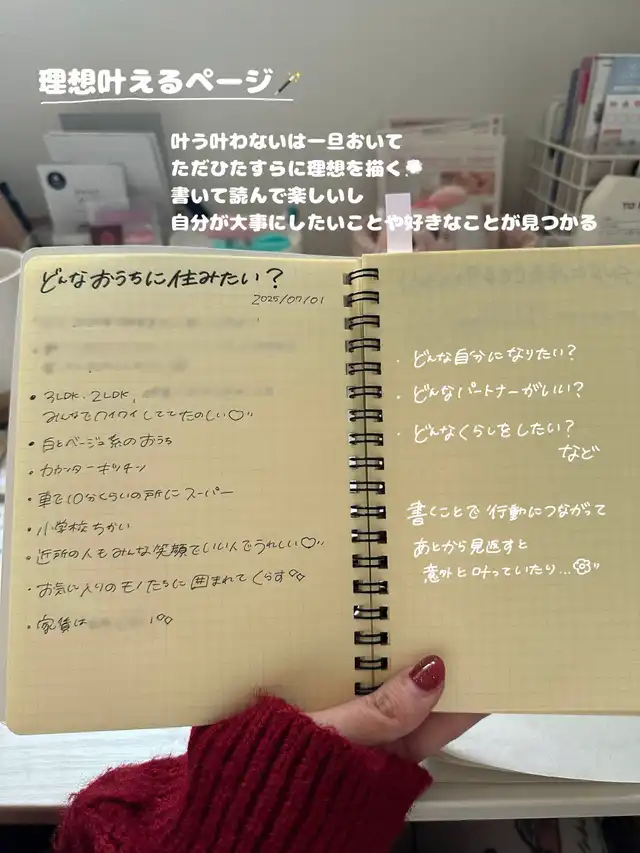 理想叶えるページ
叶う叶わないは一旦おいて
ただひたすらに理想を描く
書いて読んで楽しいし
自分が大事にしたいことや好きなことが見つかる
どんなおうちに住みたい?
2025/07/01
・3LDK、2LDK、
みんなでワイワイしててたのしい♡〃
・白とベージュ系のおうち
・カウンターキッチン
・車で10分くらいの所にスーパー
・小学校ちかい
・近所の人もみんな笑顔でいい人でうれしい♡〃
・お気に入りのモノたちに囲まれてくらす
・家賃は
・どんな自分になりたい?
・どんなパートナーがいい?
・どんなくらしをしたい?
など
書くことで行動につながって
あとから見返すと
意外と叶っていたり...